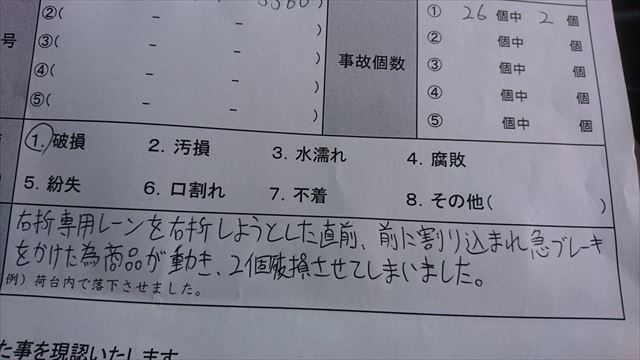 ②( - - )
号
③( - - )
④( - - )
⑤( - - )
事故個数
① 26 個中 2 個
② 個中 個
③ 個中 個
④ 個中 個
⑤ 個中 個
1. 破損 2. 汚損 3. 水濡れ 4. 腐敗
5. 紛失 6. 口割れ 7. 不着 8. その他( )
右折専用レーンを右折しようとした直前、前に割り込まれ急ブレーキ
をかけた為商品が動き、2個破損させてしまいました。
例）荷台内で落下させました。
た事を現認いたします